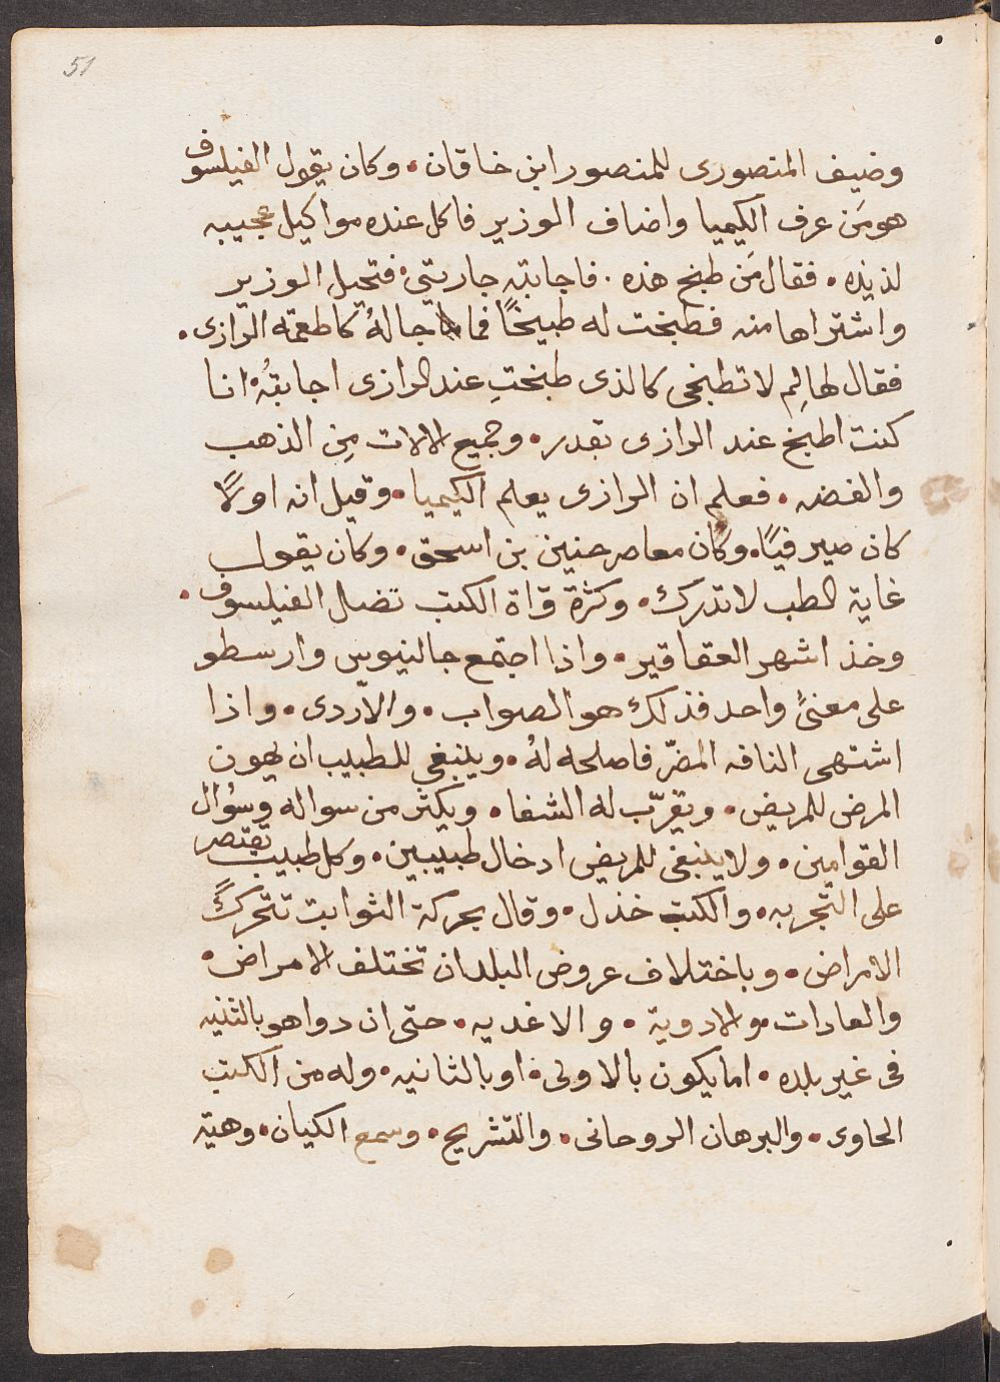 51
وضيف المنصورى للمنصور ابن خاقان. وكان يقول الفيلسوف
هو مَن عرف الكِيميا واضاف الوزير فاكل عنده مواكيل عجيبه
لذيذه. فقال مَن طبخ هذه. فاجابته جاريتي. فتحيل الوزير
واشتراها منه فطبخت له طبيخًا فما جا لهُ كاطعمة الرازى.
فقال لها لِم لا تطبخى كالذى طبختِ عند الرازى اجابتهُ انا
كنت اطبخ عند الرازى بقدر. وجميع الالات مِن الذهب
والفضه. فعلم ان الرازى يعلم الكيميا. وقيل انه اولًا
كان صيرفيًا. وكان معاصر حنين بن اسحق. وكان يقول
غاية الطب لا تدرك. وكثرة قراة الكتب تضل الفيلسوف.
وخذ اشهر العقاقير. واذا اجتمع جالينوس وارسطو
على معنىً واحد فذلك هو الصواب. والاّ ردى. واذا
اشتهى الناقه المضرّ فاصلحه لهُ. وينبغي للطبيب ان يهون
المرض للمريض. ويقرّب له الشفا. ويكثر من سواله وسُوال
القوامين. ولا ينبغى للمريض ادخال طبيبين. وكل طبيب يقتصر
على التجربه. والكتب خذل. وقال بحركة الثوابت تتحرك
الامراض. وباختلاف عروض البلدان تختلف الامراض.
والعادات. والادوية. والاغديه. حتى ان دوا هو بالثنيه
فى غير بلده. اما يكون بالاولى. او بالثانيه. وله من الكتب
الحاوى. والبرهان الروحانى. والتشريح. وسمع الكيان. وهية